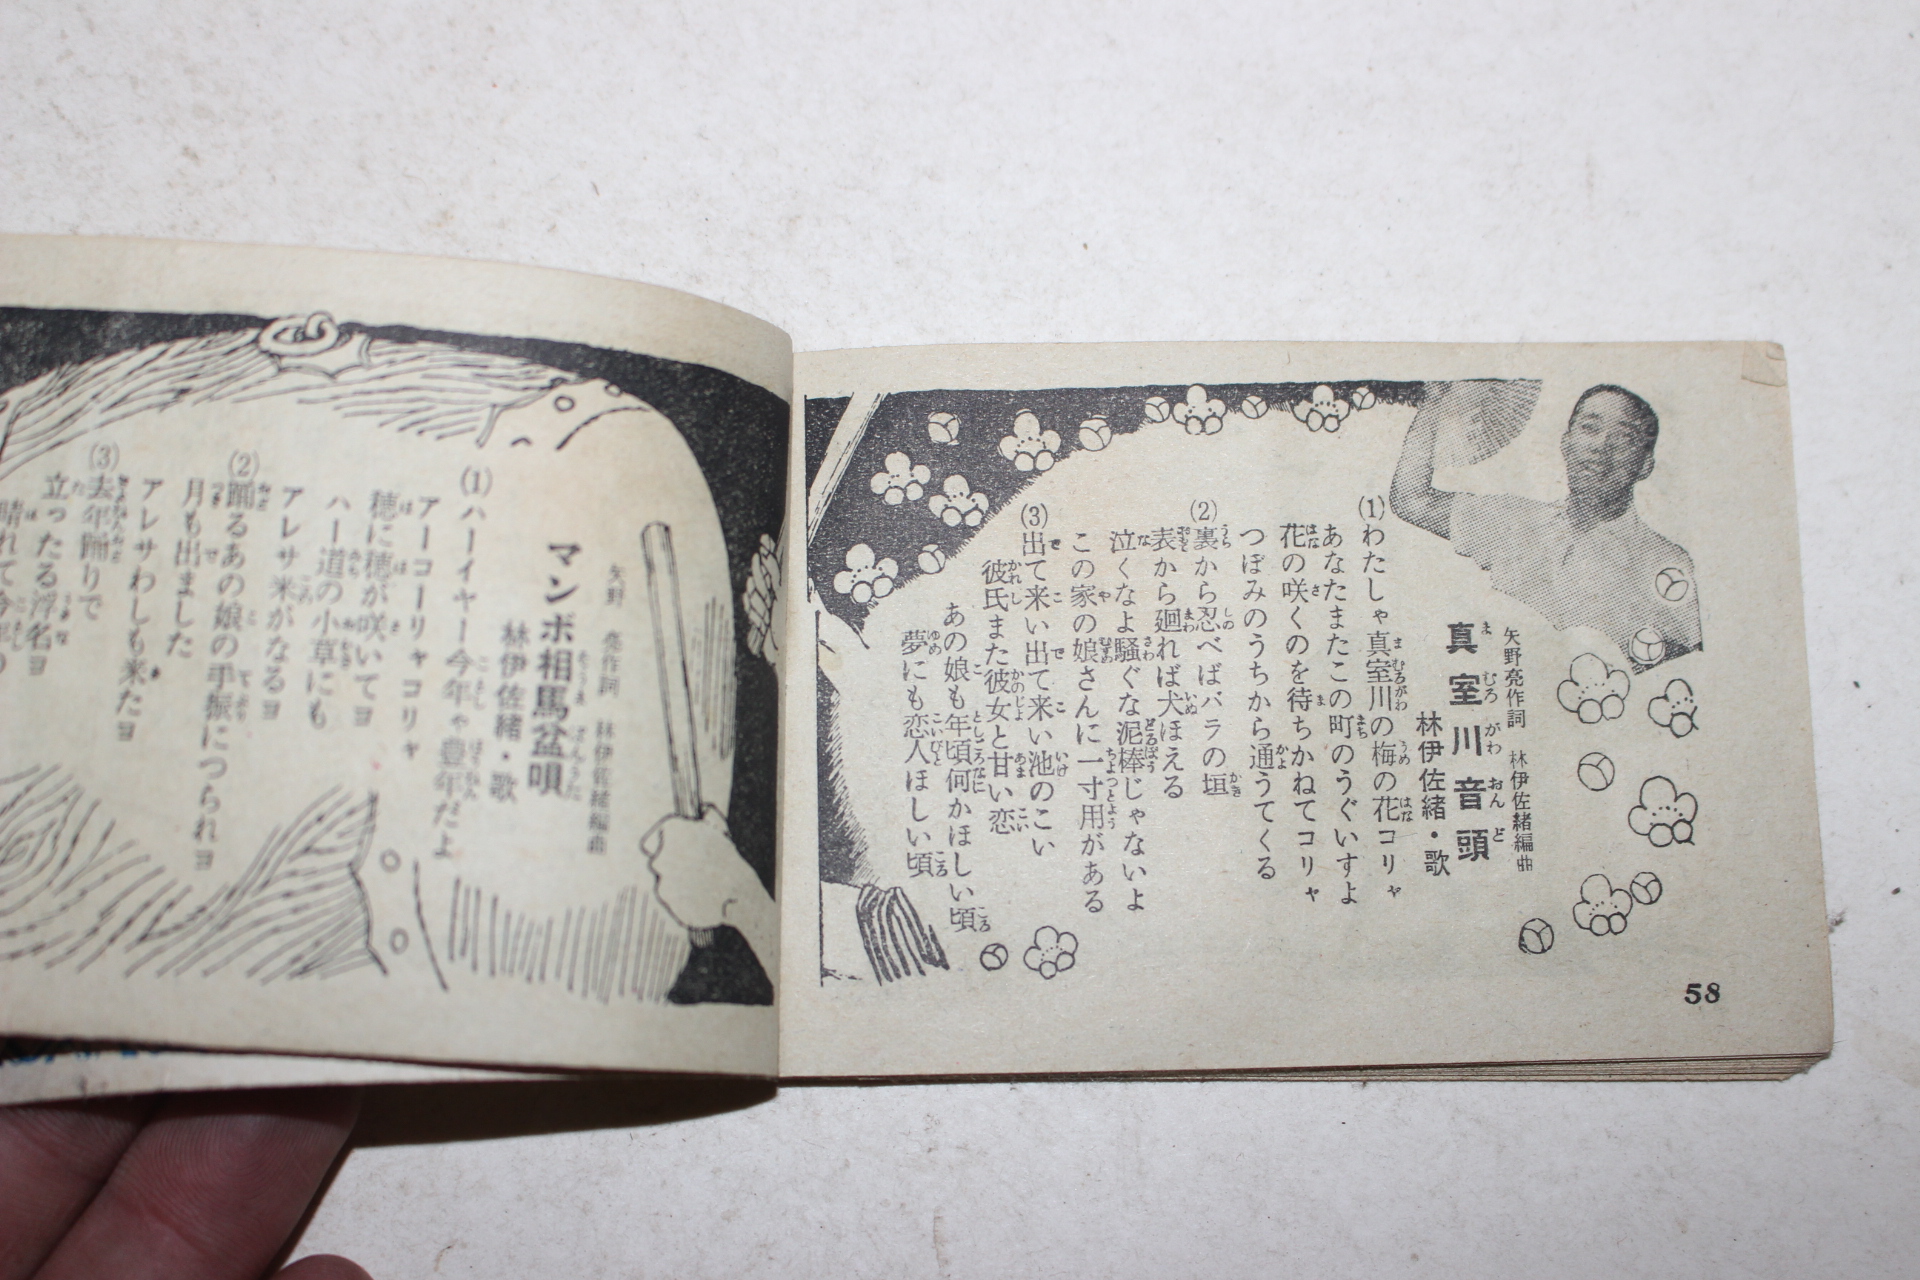 矢野亮作詞 林伊佐緒編曲
真室川音頭
林伊佐緒・歌
(1)わたしゃ真室川の梅の花コリャ
あなたまたこの町のうぐいすよ
花の咲くのを待ちかねてコリャ
つぼみのうちから通うてくる
(2)裏から忍べばバラの垣
表から廻れば犬ほえる
泣くなよ騒ぐな泥棒じゃないよ
この家の娘さんに一寸用がある
(3)出て来い出て来い池のこい
彼氏また彼女と甘い恋
あの娘も年頃何かほしい頃
夢にも恋人ほしい頃
58
矢野 亮作詞 林伊佐緒編曲
マンボ相馬盆唄
林伊佐緒・歌
(1)ハーイヤー今年ゃ豊年だよ
アーコーリャコリャ
穂に穂が咲いてヨ
ハー道の小草にも
アレサ米がなるヨ
(2)踊るあの娘の手振につられヨ
月も出ました
アレサわしも来たヨ
(3)去年踊りで
立ったる浮名ヨ
晴れて今年の